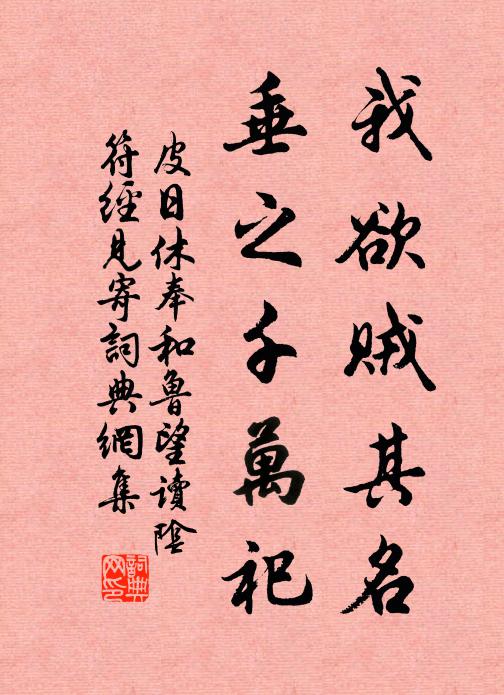 我欲賊其名
垂之千萬祀
皮日休奉和魯望讀陰
符經見寄詞典網集
詞典
网印